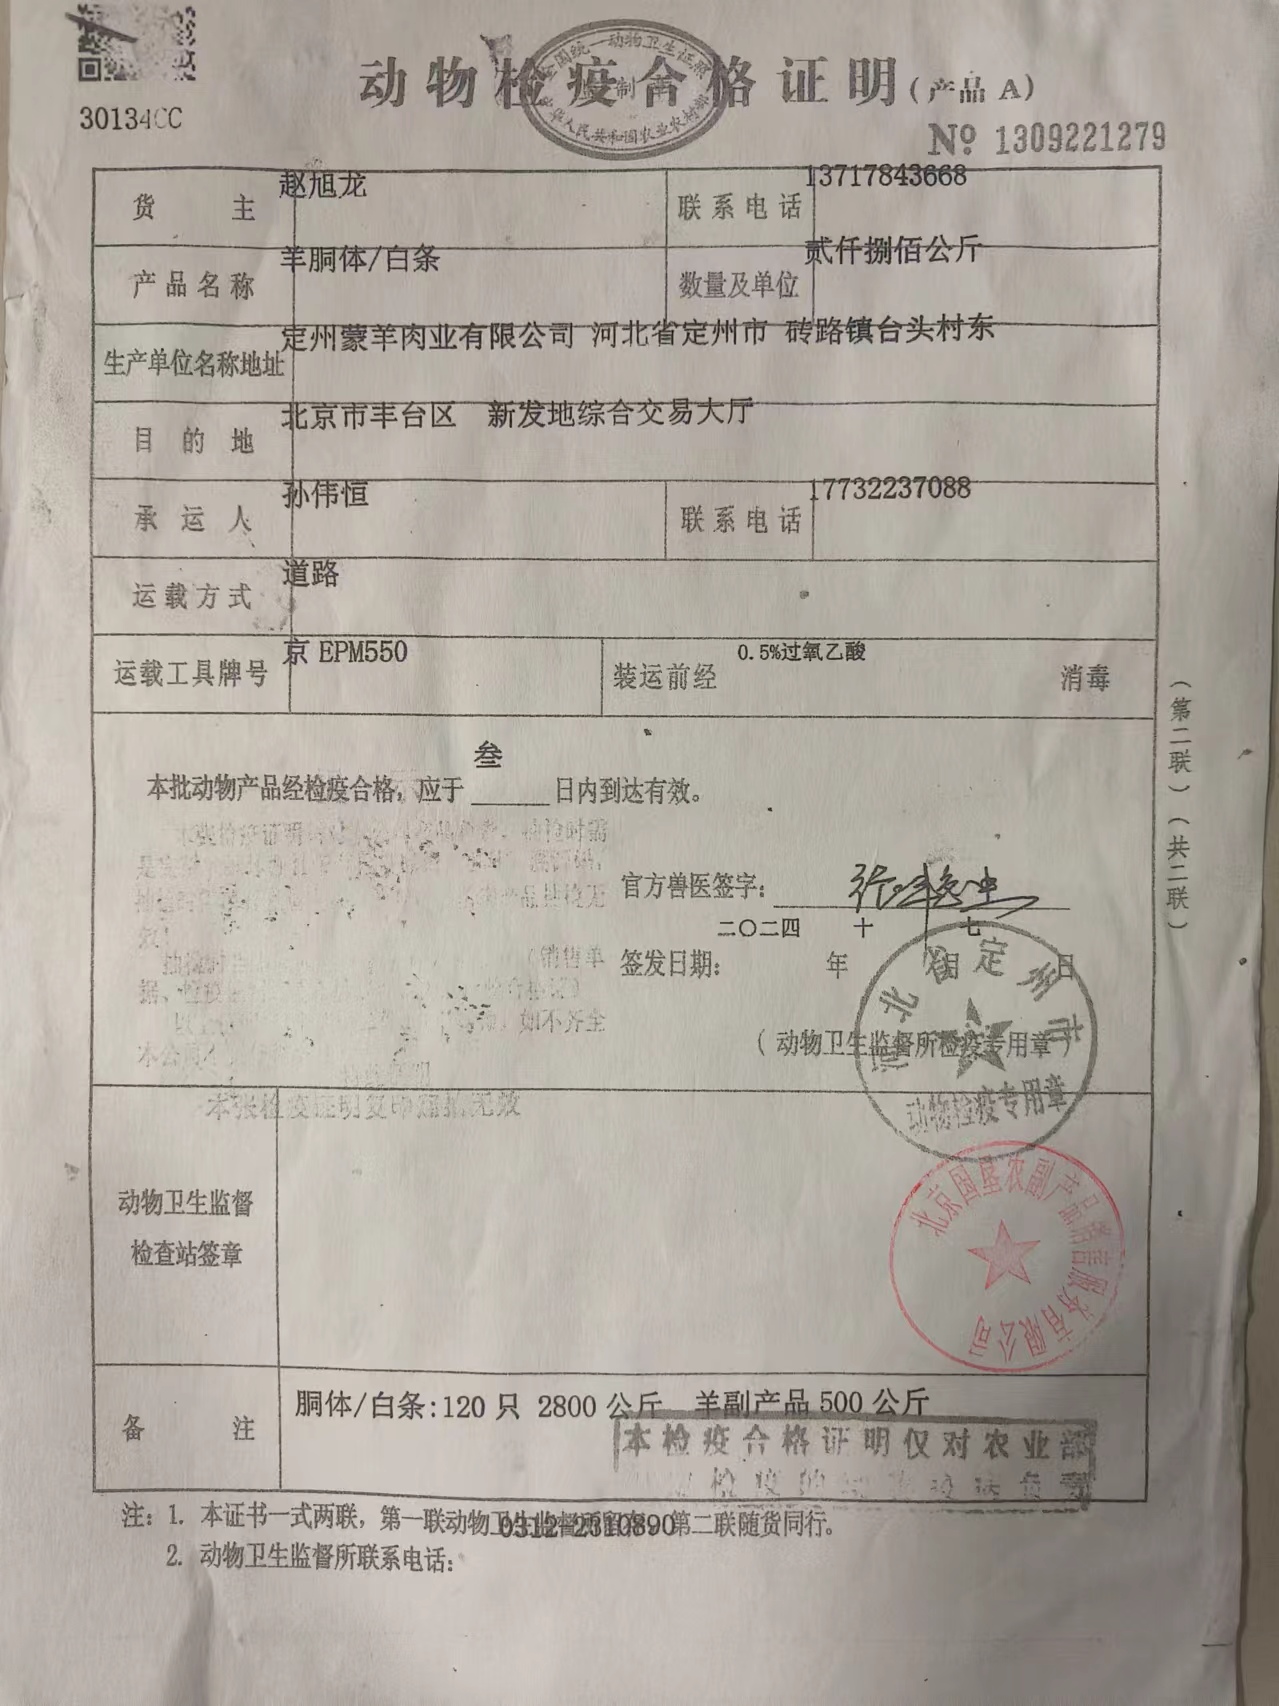 全国统一动物卫生证照
中华人民共和国农业农村部
动物检疫合格证明(产品 A)
30134CC
№ 1309221279
货主 赵旭龙 联系电话 13717843668
产品名称 羊胴体/白条 数量及单位 贰仟捌佰公斤
生产单位名称地址 定州蒙羊肉业有限公司 河北省定州市 砖路镇台头村东
目的地 北京市丰台区 新发地综合交易大厅
承运人 孙伟恒 联系电话 17732237088
运载方式 道路
运载工具牌号 京 EPM550 装运前经 0.5%过氧乙酸 消毒
叁
本批动物产品经检疫合格，应于 日内到达有效。
官方兽医签字：
二〇二四 十 七
签发日期： 年 月 日
(动物卫生监督所检疫专用章)
河北省定州市
动物检疫专用章
(第二联)(共二联)
销售单
如不齐全
本公司
本张检疫证明复印 无效
动物卫生监督
检查站签章
北京国垦农副产品销售服务有限公司
备注 胴体/白条:120 只 2800 公斤 羊副产品 500 公斤
本检疫合格证明仅对农业部
检疫的
注：1. 本证书一式两联，第一联动物卫生监督所留存，第二联随货同行。
0312 2310890
2. 动物卫生监督所联系电话：